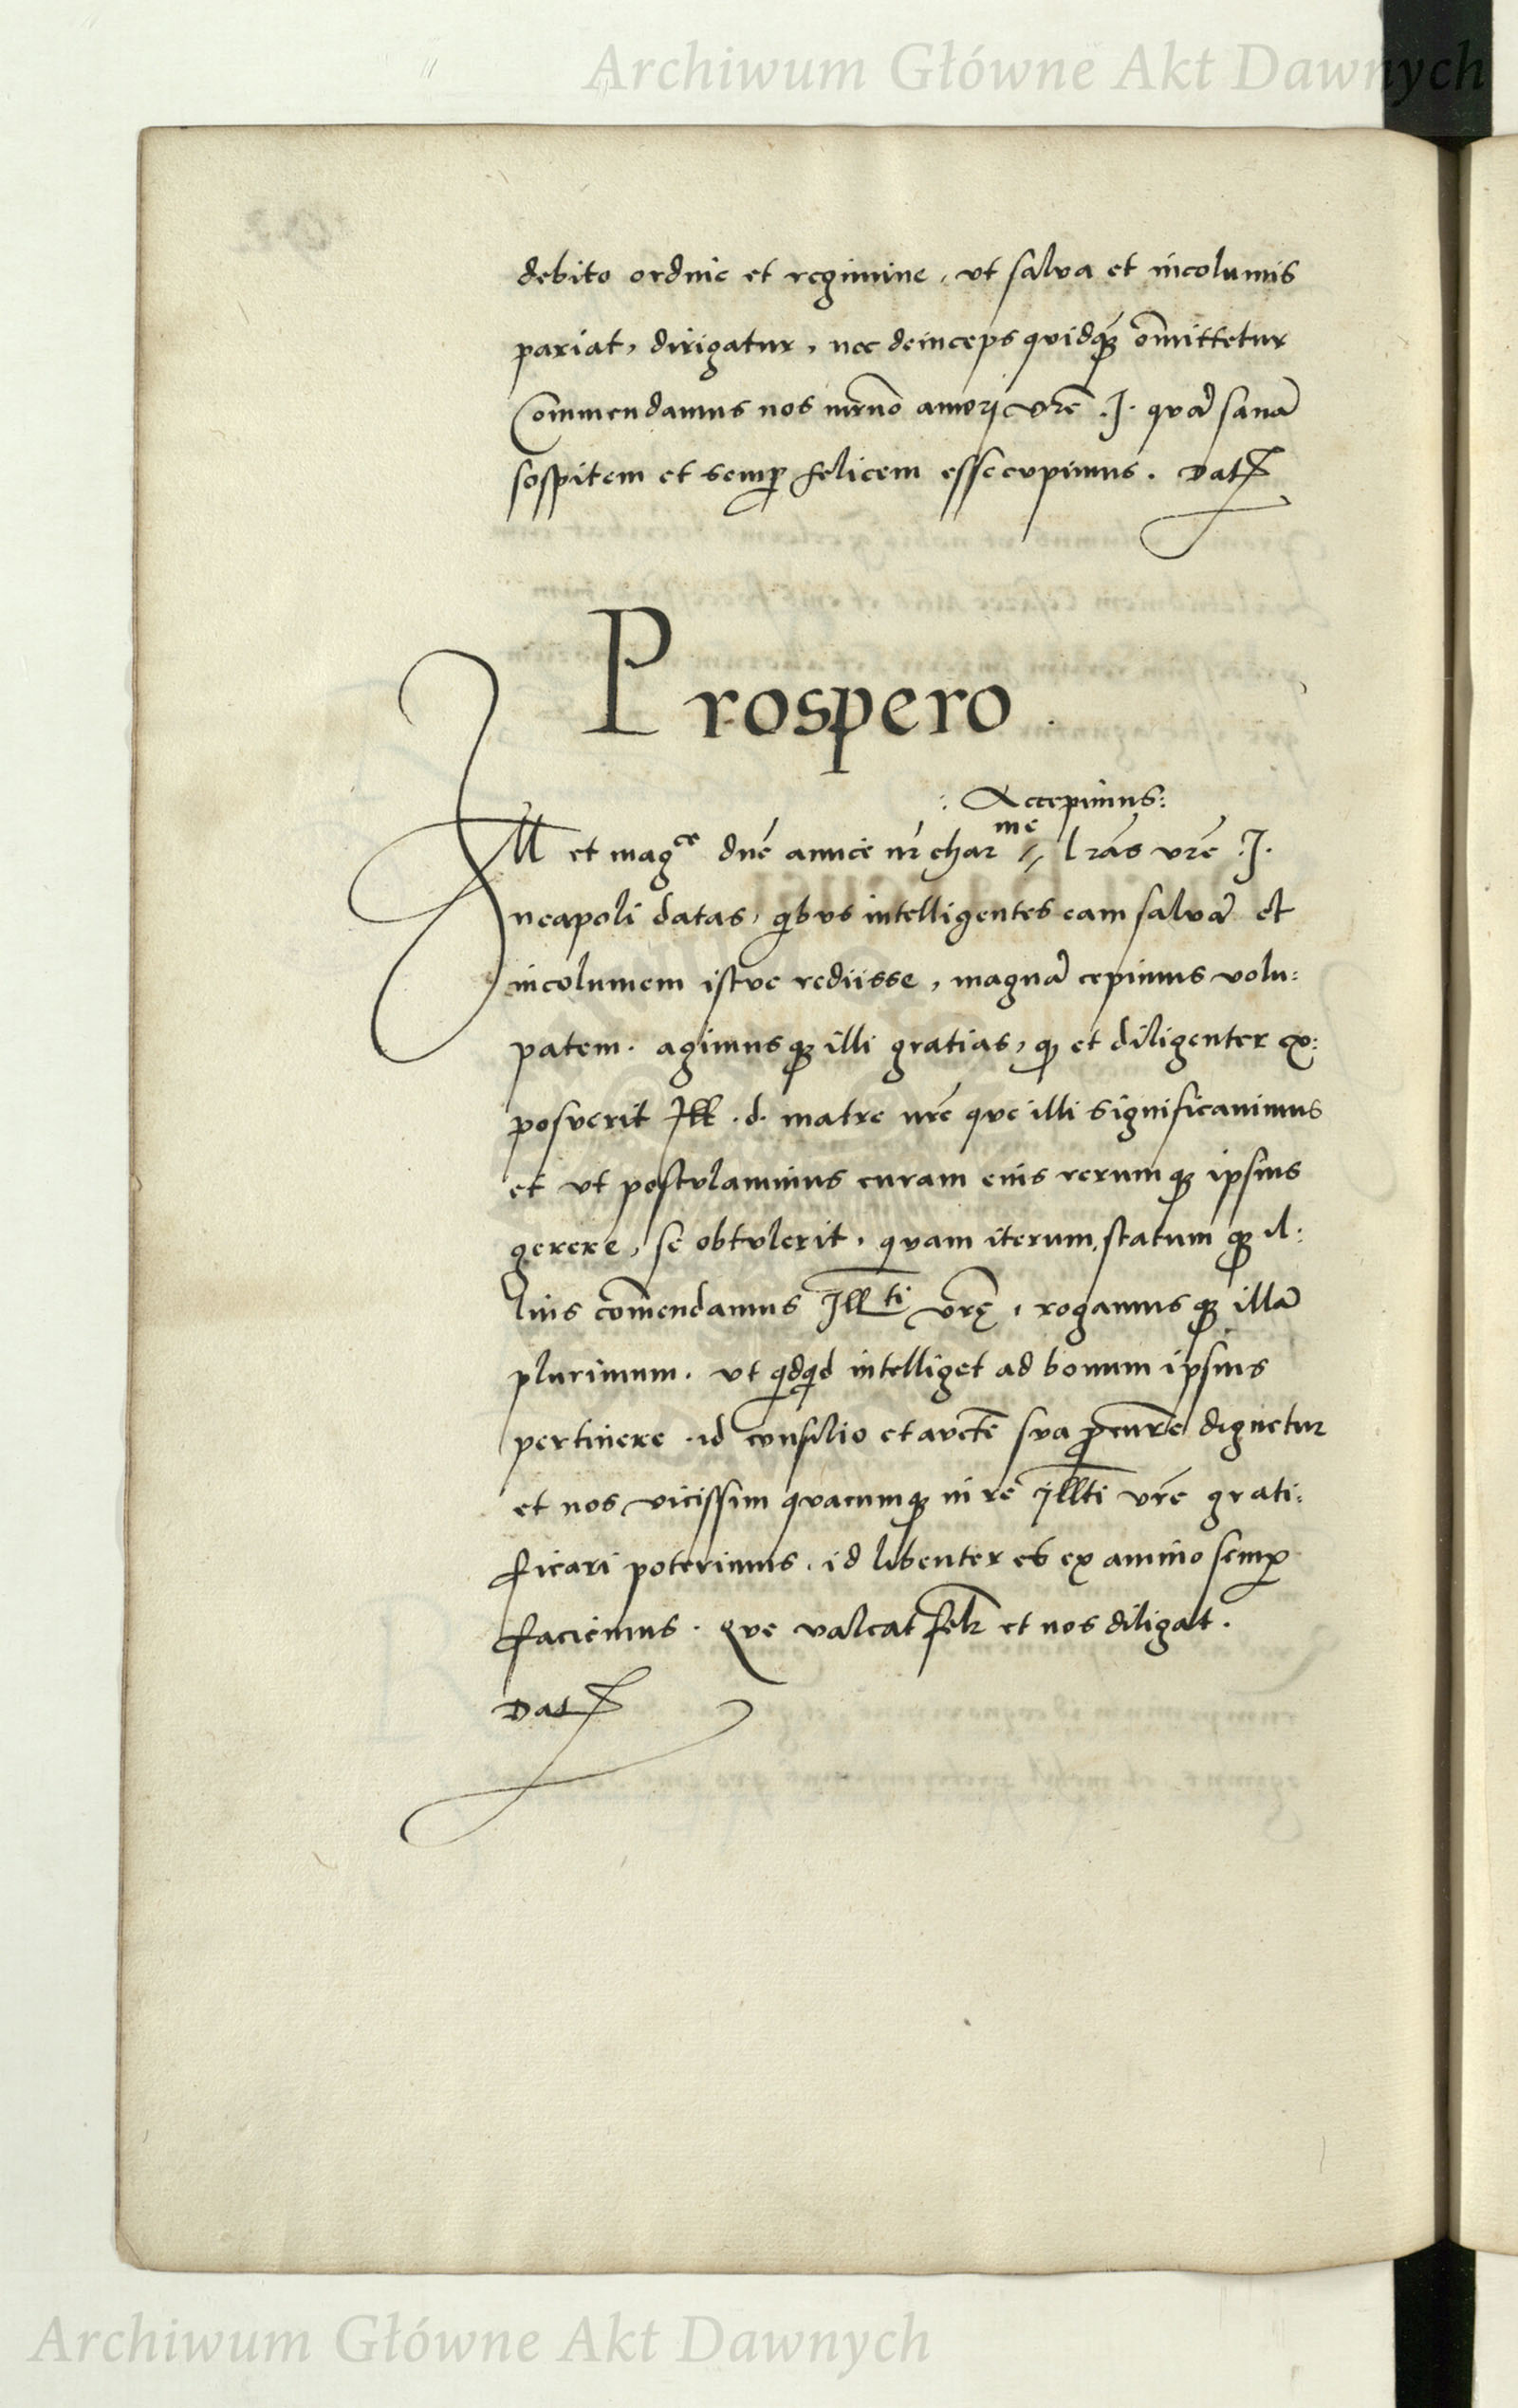 Archiwum Główne Akt Dawnych
debito ordine et regimine, vt salva et incolumis
pariat, dirigatur, nec deinceps quidq̃ om̃ittetur
Commendamus nos mr̃no amori vrẽ .I. quã sanã
sospitem et semp felicem esse cupimus. Dat
Prospero.
: Accepimus:
Ill et magce dnẽ amice nr̃ char me // lrãs vrẽ .I.
neapoli datas, qibus intelligentes eam salvã et
incolumem istuc rediisse, magnã cepimus volu:
patem. agimusq illi gratias, q et diligenter ex:
posverit Ill .d. matre nrẽ que illi significavimus
et vt postulamus curam eius rerumq ipsius
gerere, se obtulerit. quam iterum, statumq il:
lius com̃endamus Illti vrę, rogamusq illã
plurimum. vt qidqid intelliget ad bonum ipsius
pertinere .id consilio et auctẽ sua pcurrẽ dignetur
et nos vicissim quacumq in re Illti vrẽ grati:
ficari poterimus. id libenter et ex animo semp
faciemus. Que valeat felr et nos diligat.
Dat
Archiwum Główne Akt Dawnych